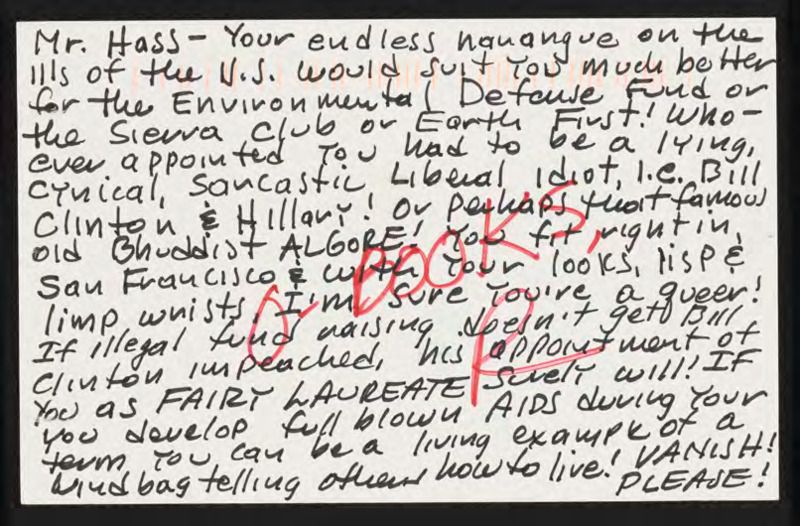 Mr. Hass - Your endless harangue on the
ills of the U.S. would suit you much better
for the Environmental Defense Fund or
the Sierra Club or Earth First! Who-
ever appointed you had to be a lying,
cynical, sarcastic Liberal idiot, i.e. Bill
Clinton & Hillary! Or perhaps that famous
old Bhuddist ALGORE! You fit right in,
San Francisco & with your looks, lisp &
limp wrists, I'm sure you're a queer!
If illegal fund raising doesn't get Bill
Clinton impeached, his appointment of
You as FAIRY LAUREATE surely will! IF
you develop full blown AIDS during your
term you can be a living example of a
windbag telling others how to live! VANISH!
PLEASE!
BOOKS,
P